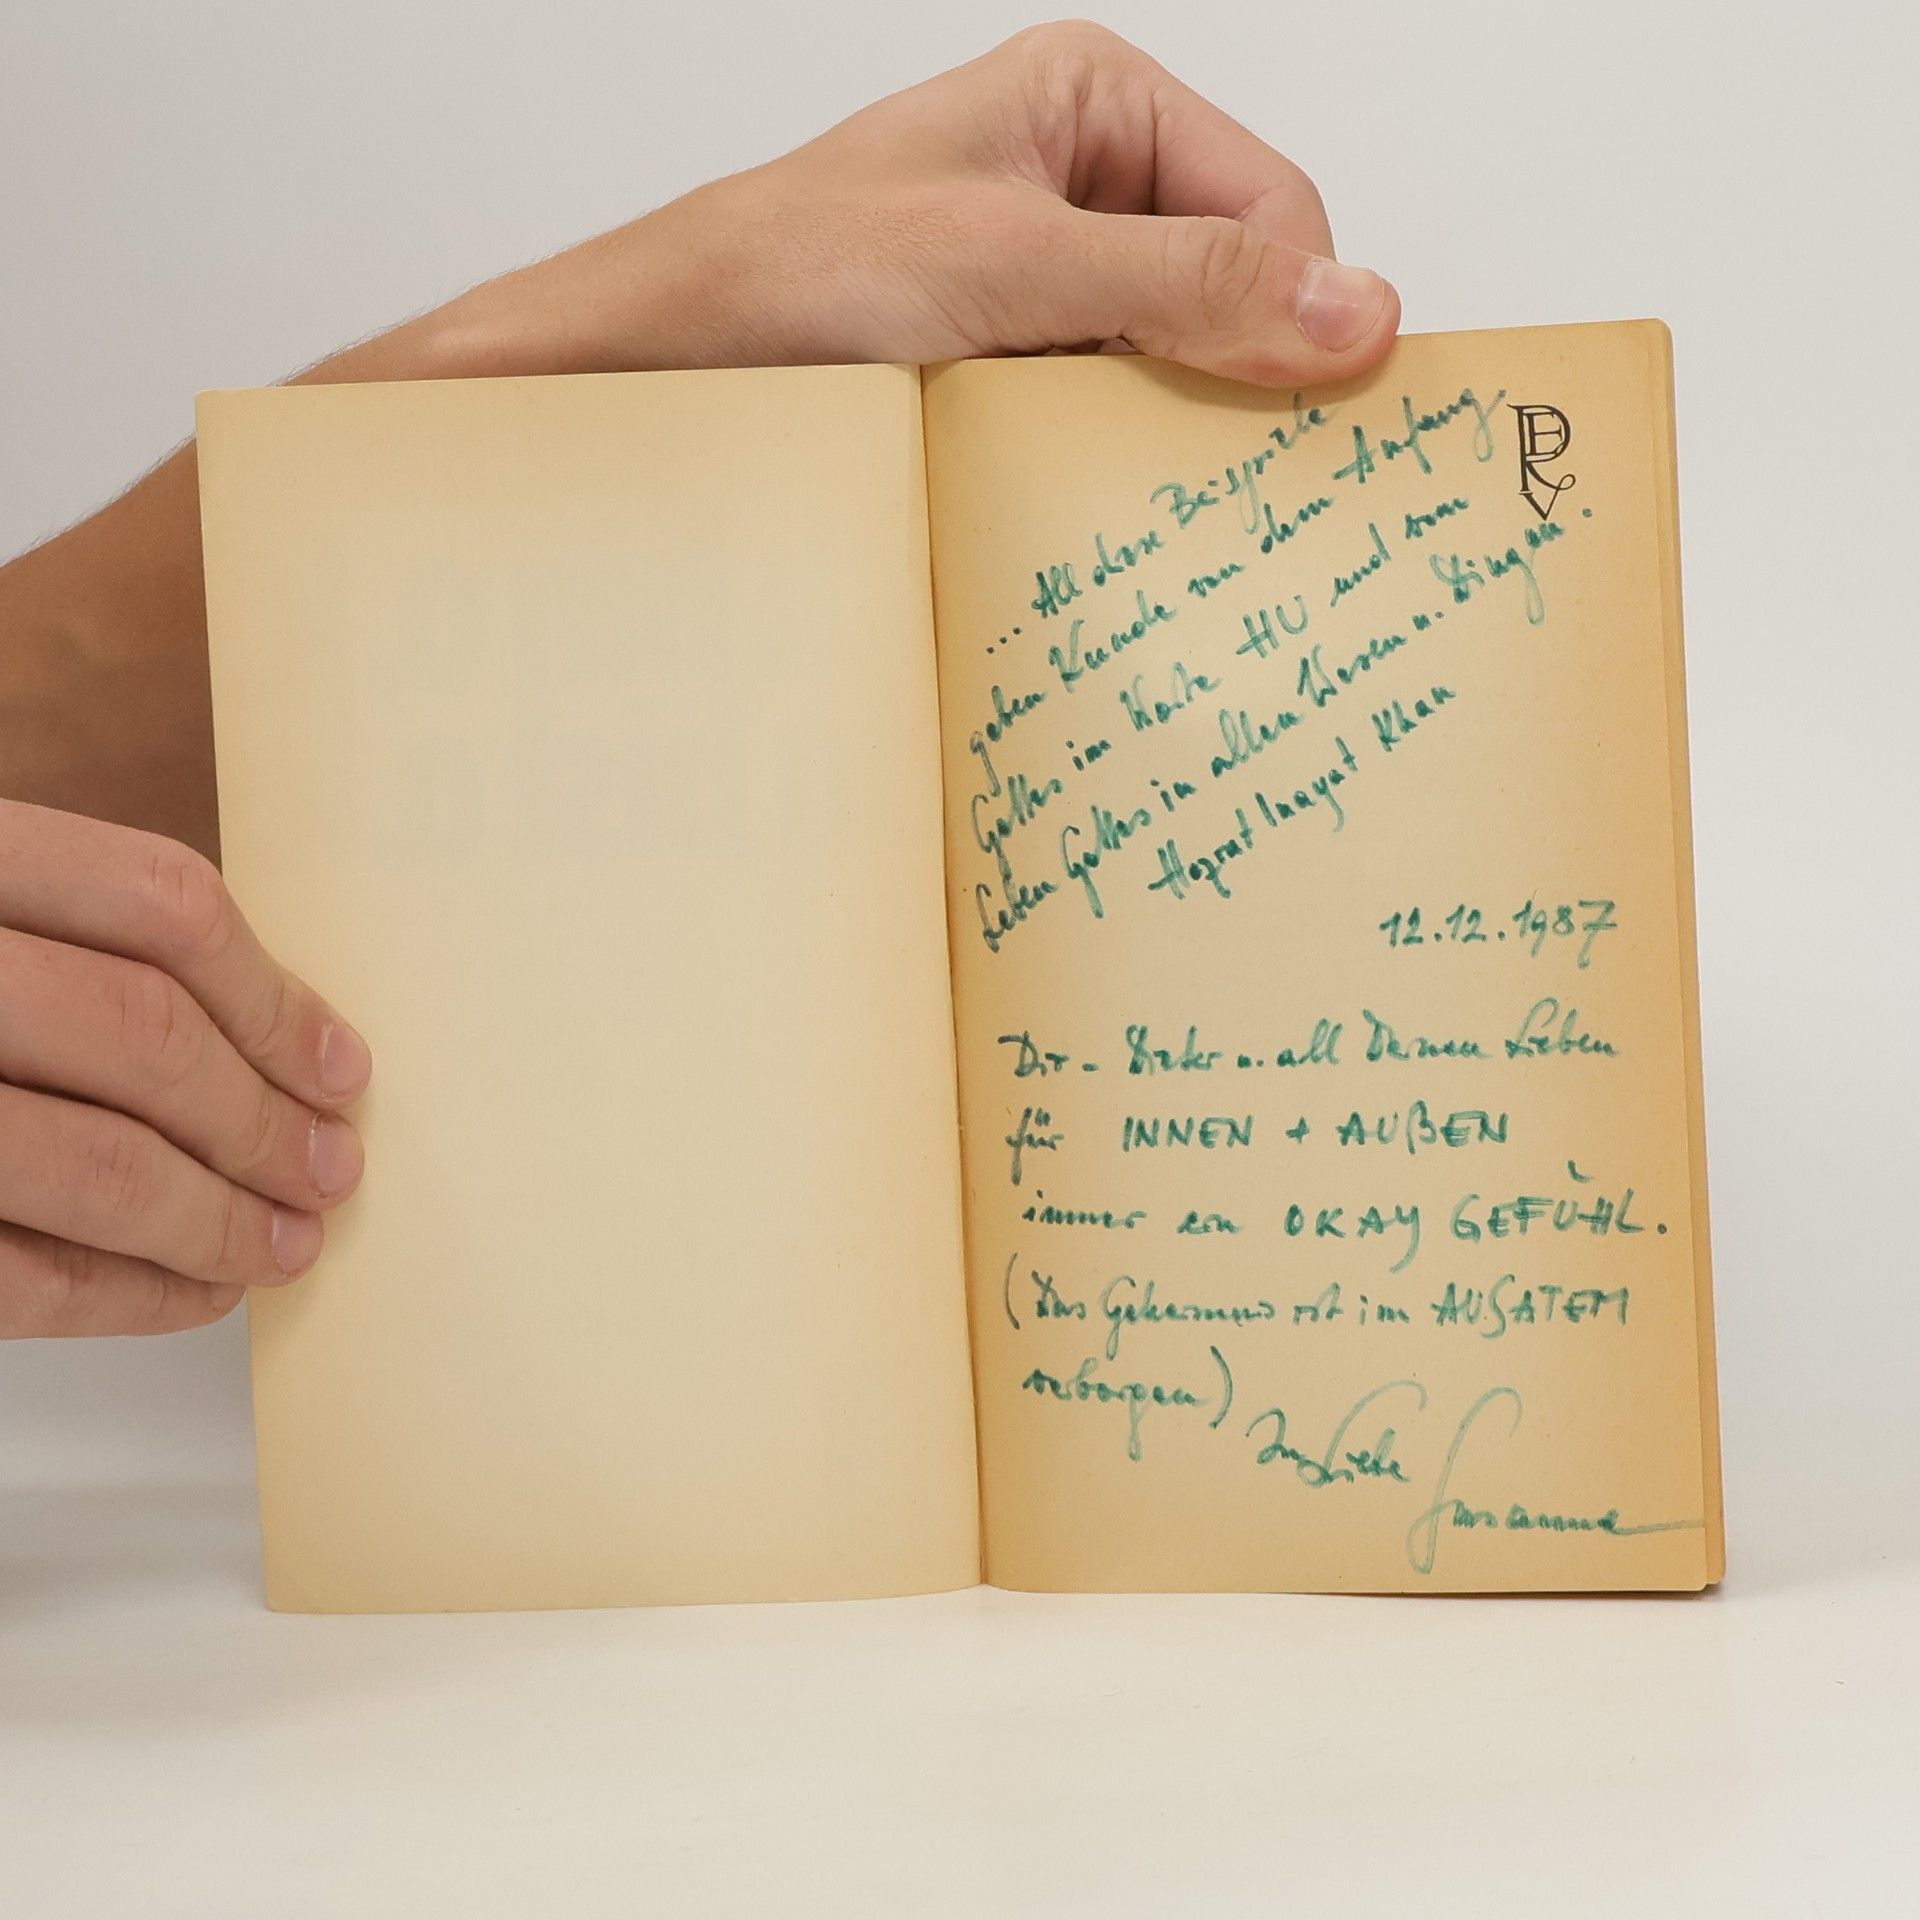 ... All diese Beispiele
geben Kunde von dem Anfang
Gottes im Worte HU und vom
Leben Gottes in allen Wesen u. Dingen.
Hazrat Inayat Khan
12.12.1987
Dir - Dieter u. all Deinen Lieben
für INNEN + AUßEN
immer ein OKAY GEFÜHL.
(Das Geheimnis ist im AUSATEM
verborgen)
In Liebe
Susanne